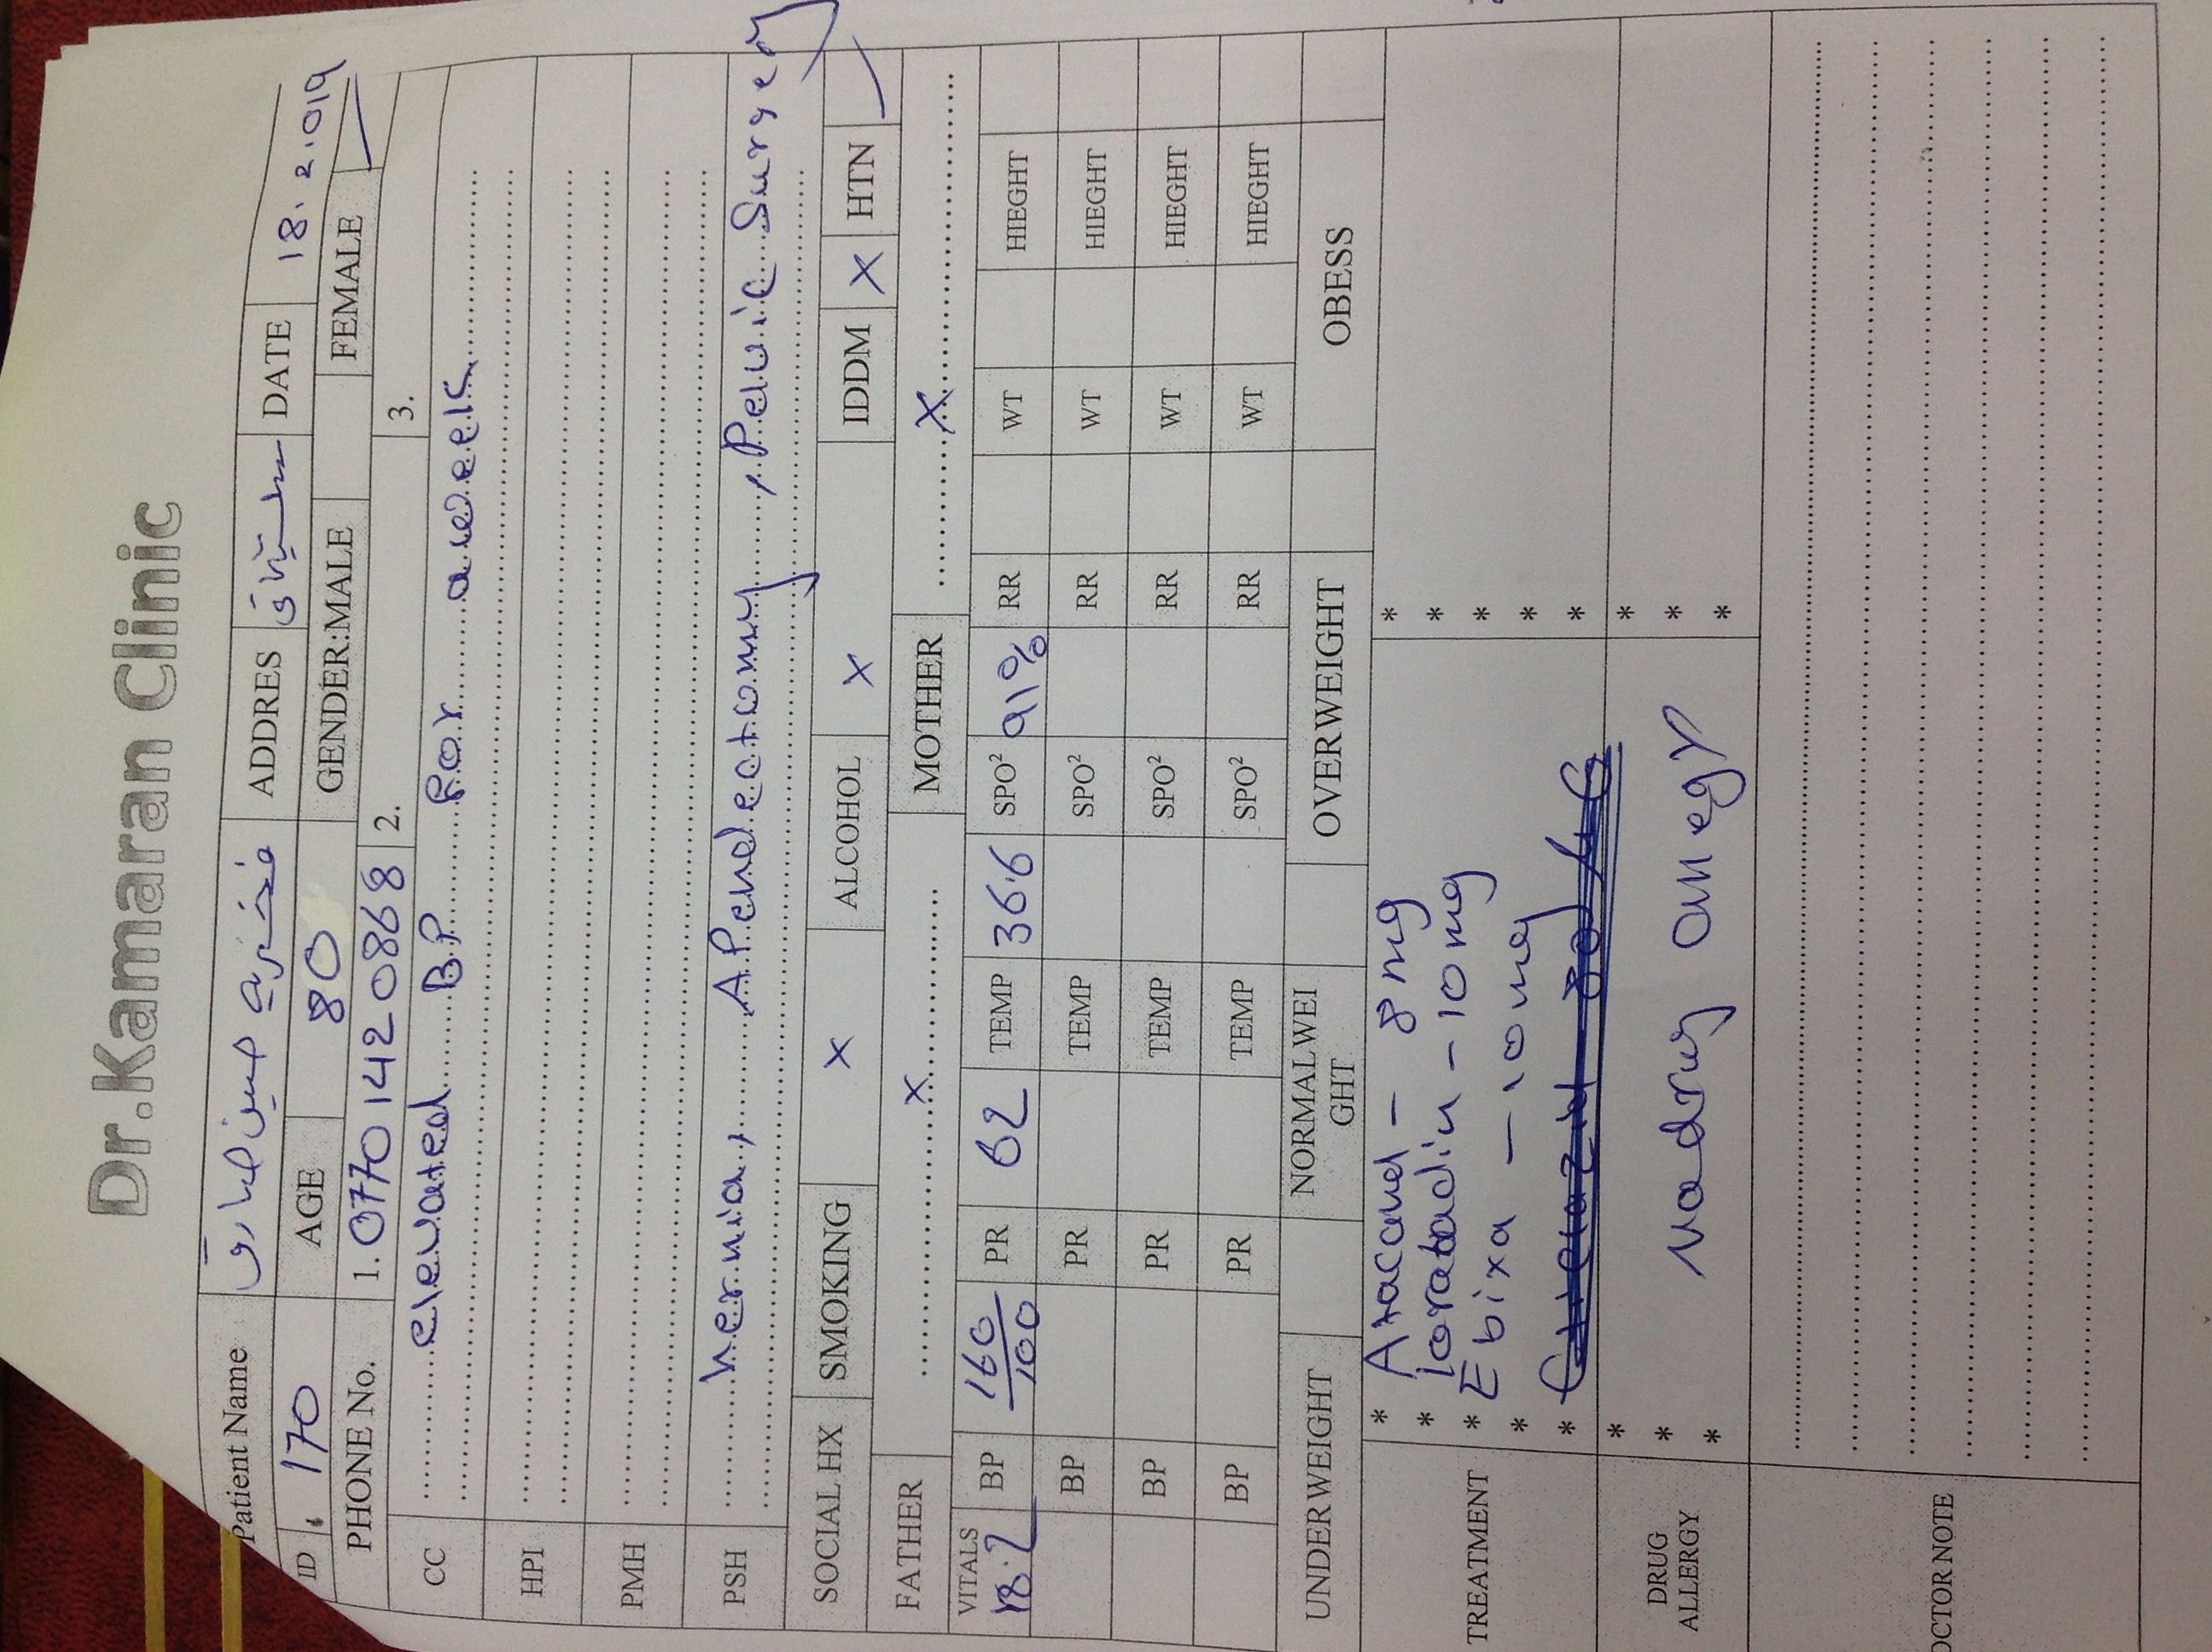 Dr.Kamaran Clinic
Patient Name فخریە حسین صادق ADDRES DATE 18.2.019
ID 170 AGE 80 GENDER:MALE FEMALE ✓
PHONE No. 1. 0770 142 0868 2. 3.
CC elevated B.P for a week
HPI
PMH
PSH hernia, A.Pendectomy, Pelvic Surgery
SOCIAL HX SMOKING X ALCOHOL X IDDM X HTN ✓
FATHER X MOTHER X
VITALS 18.2 BP 160/100 PR 62 TEMP 36.6 SPO² 91% RR WT HIEGHT
BP PR TEMP SPO² RR WT HIEGHT
BP PR TEMP SPO² RR WT HIEGHT
BP PR TEMP SPO² RR WT HIEGHT
UNDERWEIGHT NORMALWEIGHT OVERWEIGHT OBESS
TREATMENT * Atacand - 8 mg *
* loratadin - 10 mg *
* Ebixa - 10 mg *
* *
* *
DRUG ALLERGY * *
* no drug *
* *
OCTOR NOTE